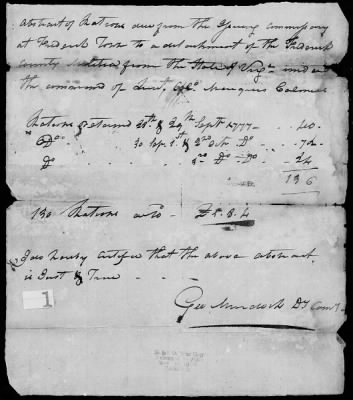 Abstract of Rations due from the Issuing commissary
at Frederick Town to a detachment of the Frederick
county Militia from the State of Virga. under
the command of
Rations returned 28th & 29th Septr 1777 - 40.
Do 30 Sep. 1st & 2nd Octr Do - 72.
Do 3rd Do Do - 24
136
136 Rations
I do hereby certifee that the above abstract
is Just & True
Geo Murdock D Comy.
1